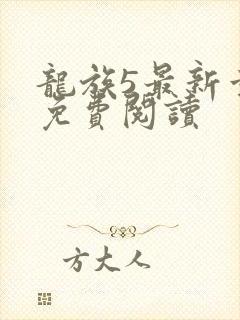 龍族5最新
免費閱讀
方大人